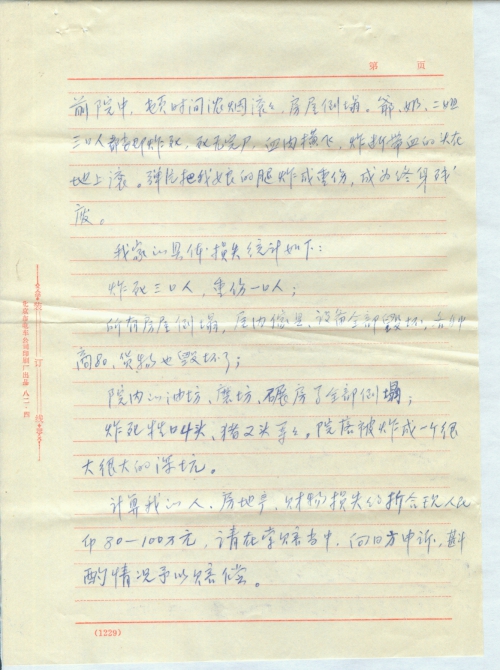 第 页
前院中，顿时间浓烟滚滚，房屋倒塌。爷、奶、二姐
三口人都当即炸死，死无完尸，血肉横飞，炸断带血的头在
地上滚。弹片把我娘的腿炸成重伤，成为终身残
废。
我家的具体损失统计如下：
炸死三口人，重伤一口人；
所有房屋倒塌，屋内家具、设备全部毁坏，各种
商品、货物也毁坏了；
院内的油坊、磨坊、碾房子全部倒塌；
炸死牲口4头、猪2头等等。院落被炸成一个很
大很大的深坑。
计算我的人、房地产、财物损失约折合现人民
币80—100万元，请在索赔当中，向日方申诉，斟
酌情况予以赔偿。
(1229)
装 订 线